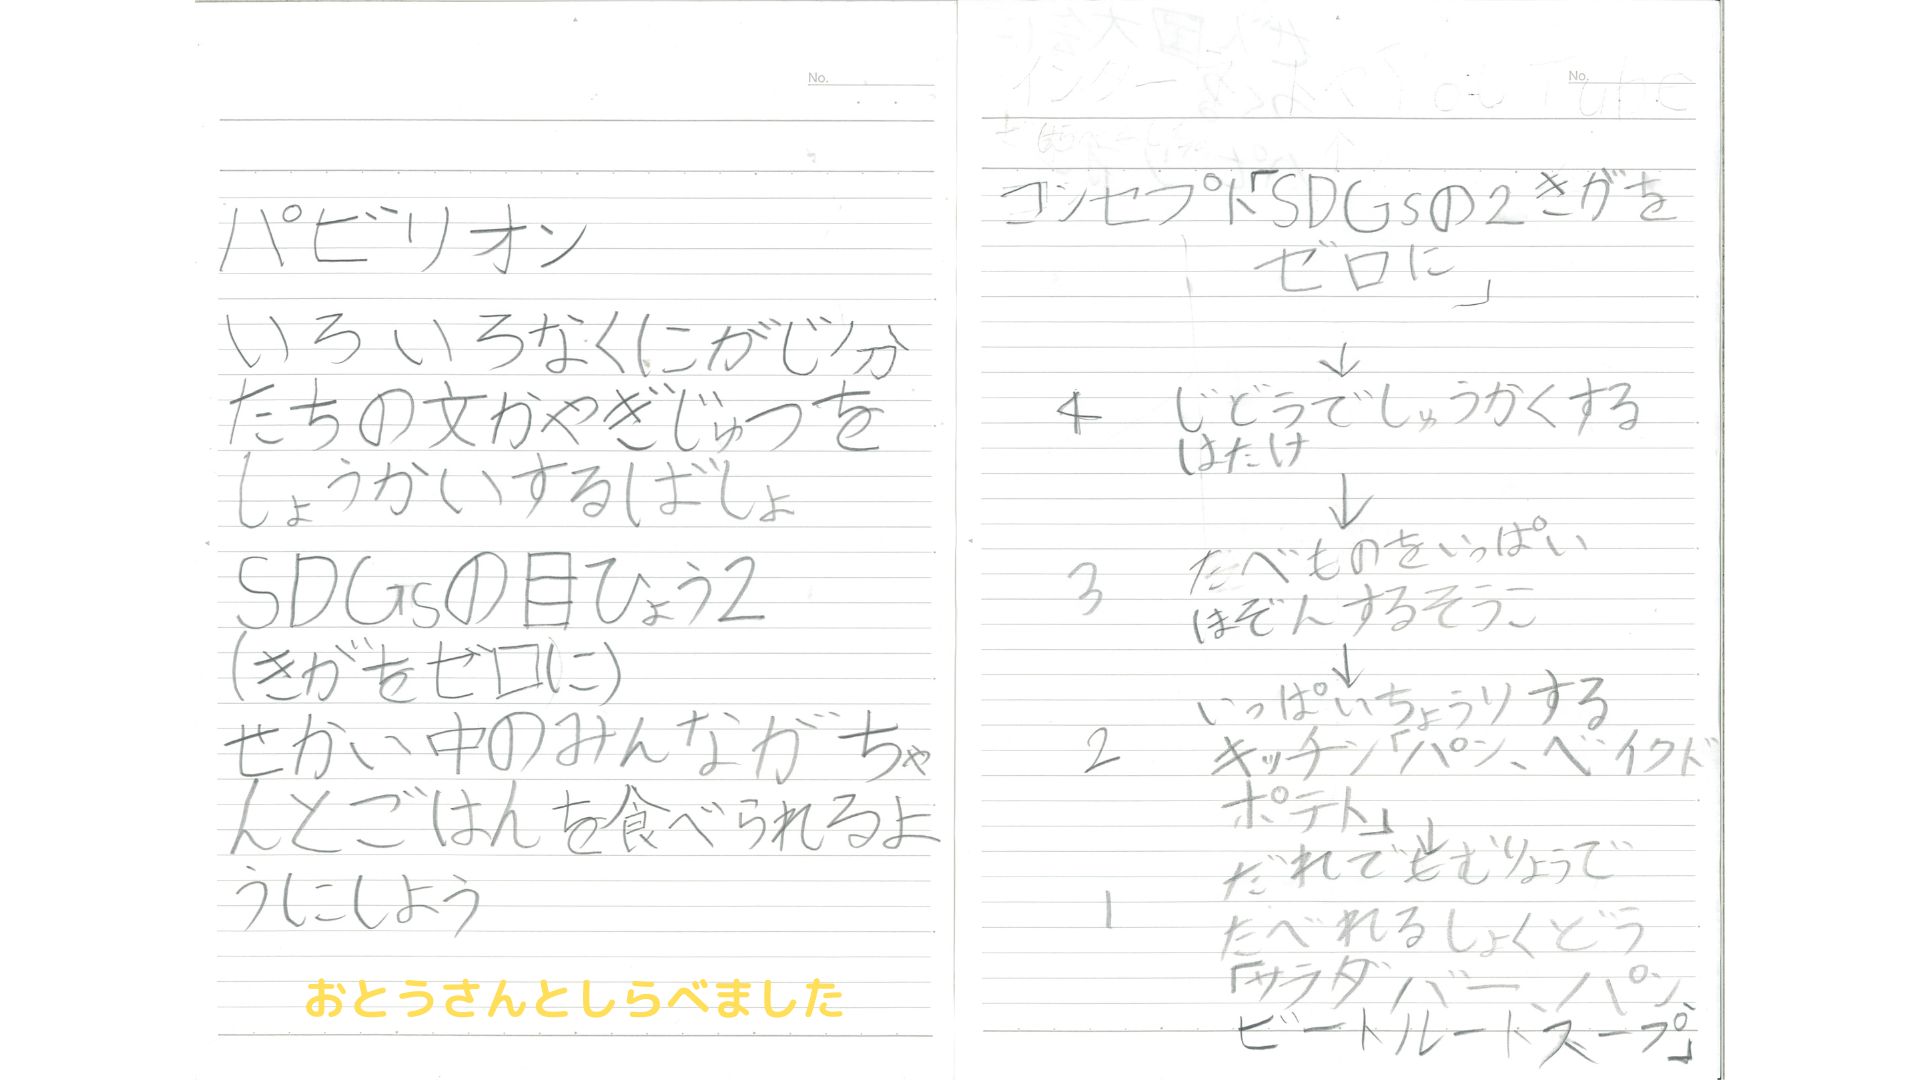 No.
パビリオン
いろいろなくにがじ分
たちの文かやぎじゅつを
しょうかいするばしょ
SDGsの目ひょう2
(きがをゼロに)
せかい中のみんながちゃ
んとごはんを食べられるよ
うにしよう
おとうさんとしらべました
No.
コンセプト「SDGsの2きがを
ゼロに」
↓
4 じどうでしゅうかくする
はたけ
↓
3 たべものをいっぱい
ほぞんするそうこ
↓
いっぱいちょうりする
2 キッチン「パン、ベイクド
ポテト」
↓
だれでもむりょうで
1 たべれるしょくどう
「サラダバー、パン、
ビートルートスープ」